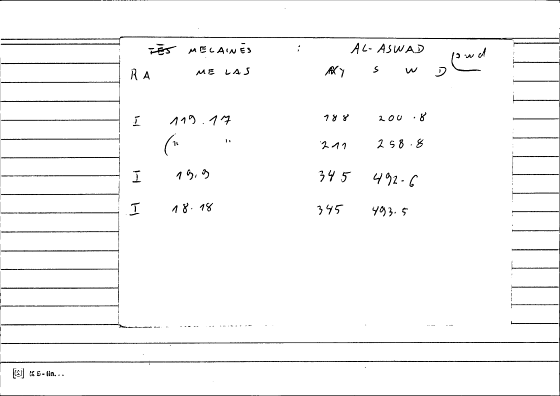 TĒS MELAINĒS : AL-ASWAD swd
RA MELAS S W D
I 119.17 188 200.8
(" " 211 258.8
I 19.9 345 492.6
I 18.18 345 493.5